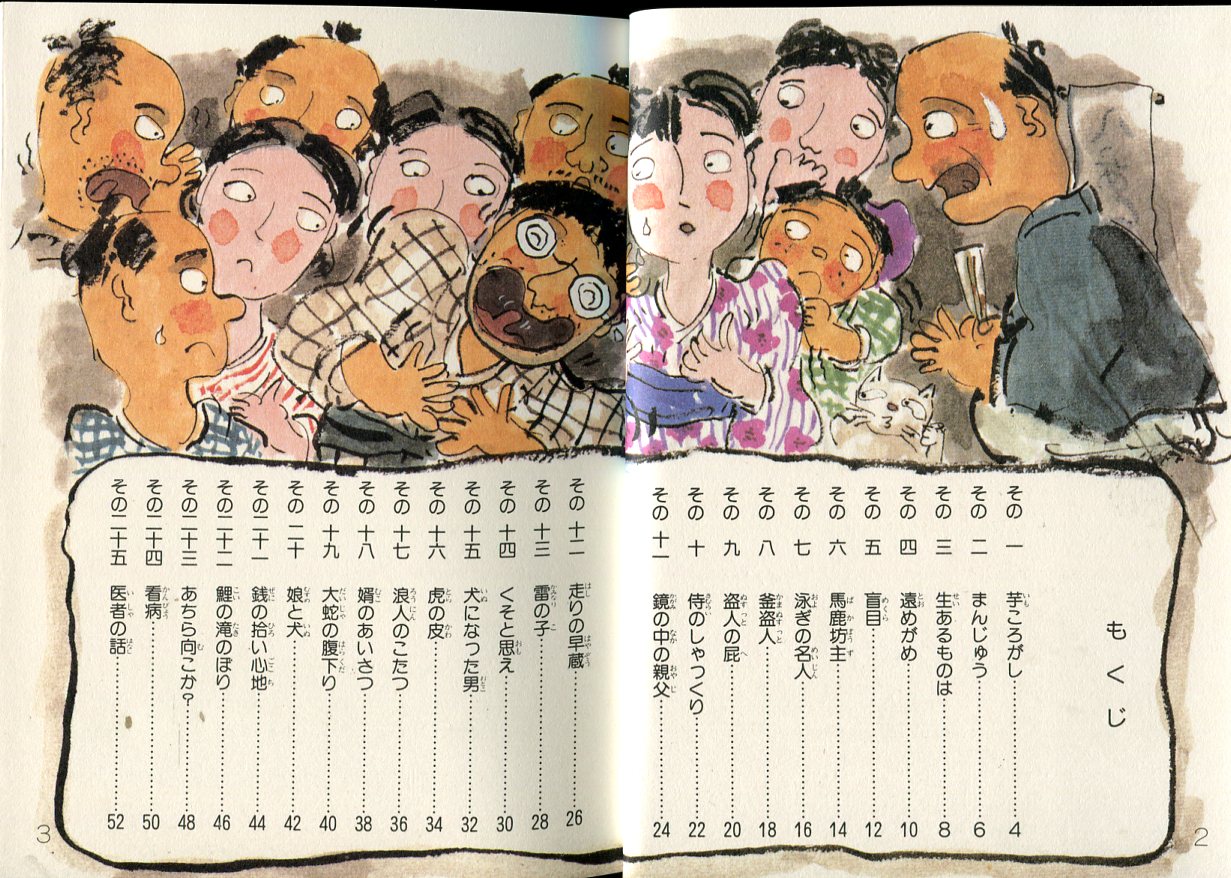 もくじ
その 一 芋ころがし 4
その 二 まんじゅう 6
その 三 生あるものは 8
その 四 遠めがめ 10
その 五 盲目 12
その 六 馬鹿坊主 14
その 七 泳ぎの名人 16
その 八 釜盗人 18
その 九 盗人の屁 20
その 十 侍のしゃっくり 22
その 十一 鏡の中の親父 24
その 十二 走りの早蔵 26
その 十三 雷の子 28
その 十四 くそと思え 30
その 十五 犬になった男 32
その 十六 虎の皮 34
その 十七 浪人のこたつ 36
その 十八 婿のあいさつ 38
その 十九 大蛇の腹下り 40
その 二十 娘と犬 42
その二十一 銭の拾い心地 44
その二十二 鯉の滝のぼり 46
その二十三 あちら向こか? 48
その二十四 看病 50
その二十五 医者の話 52
2
3